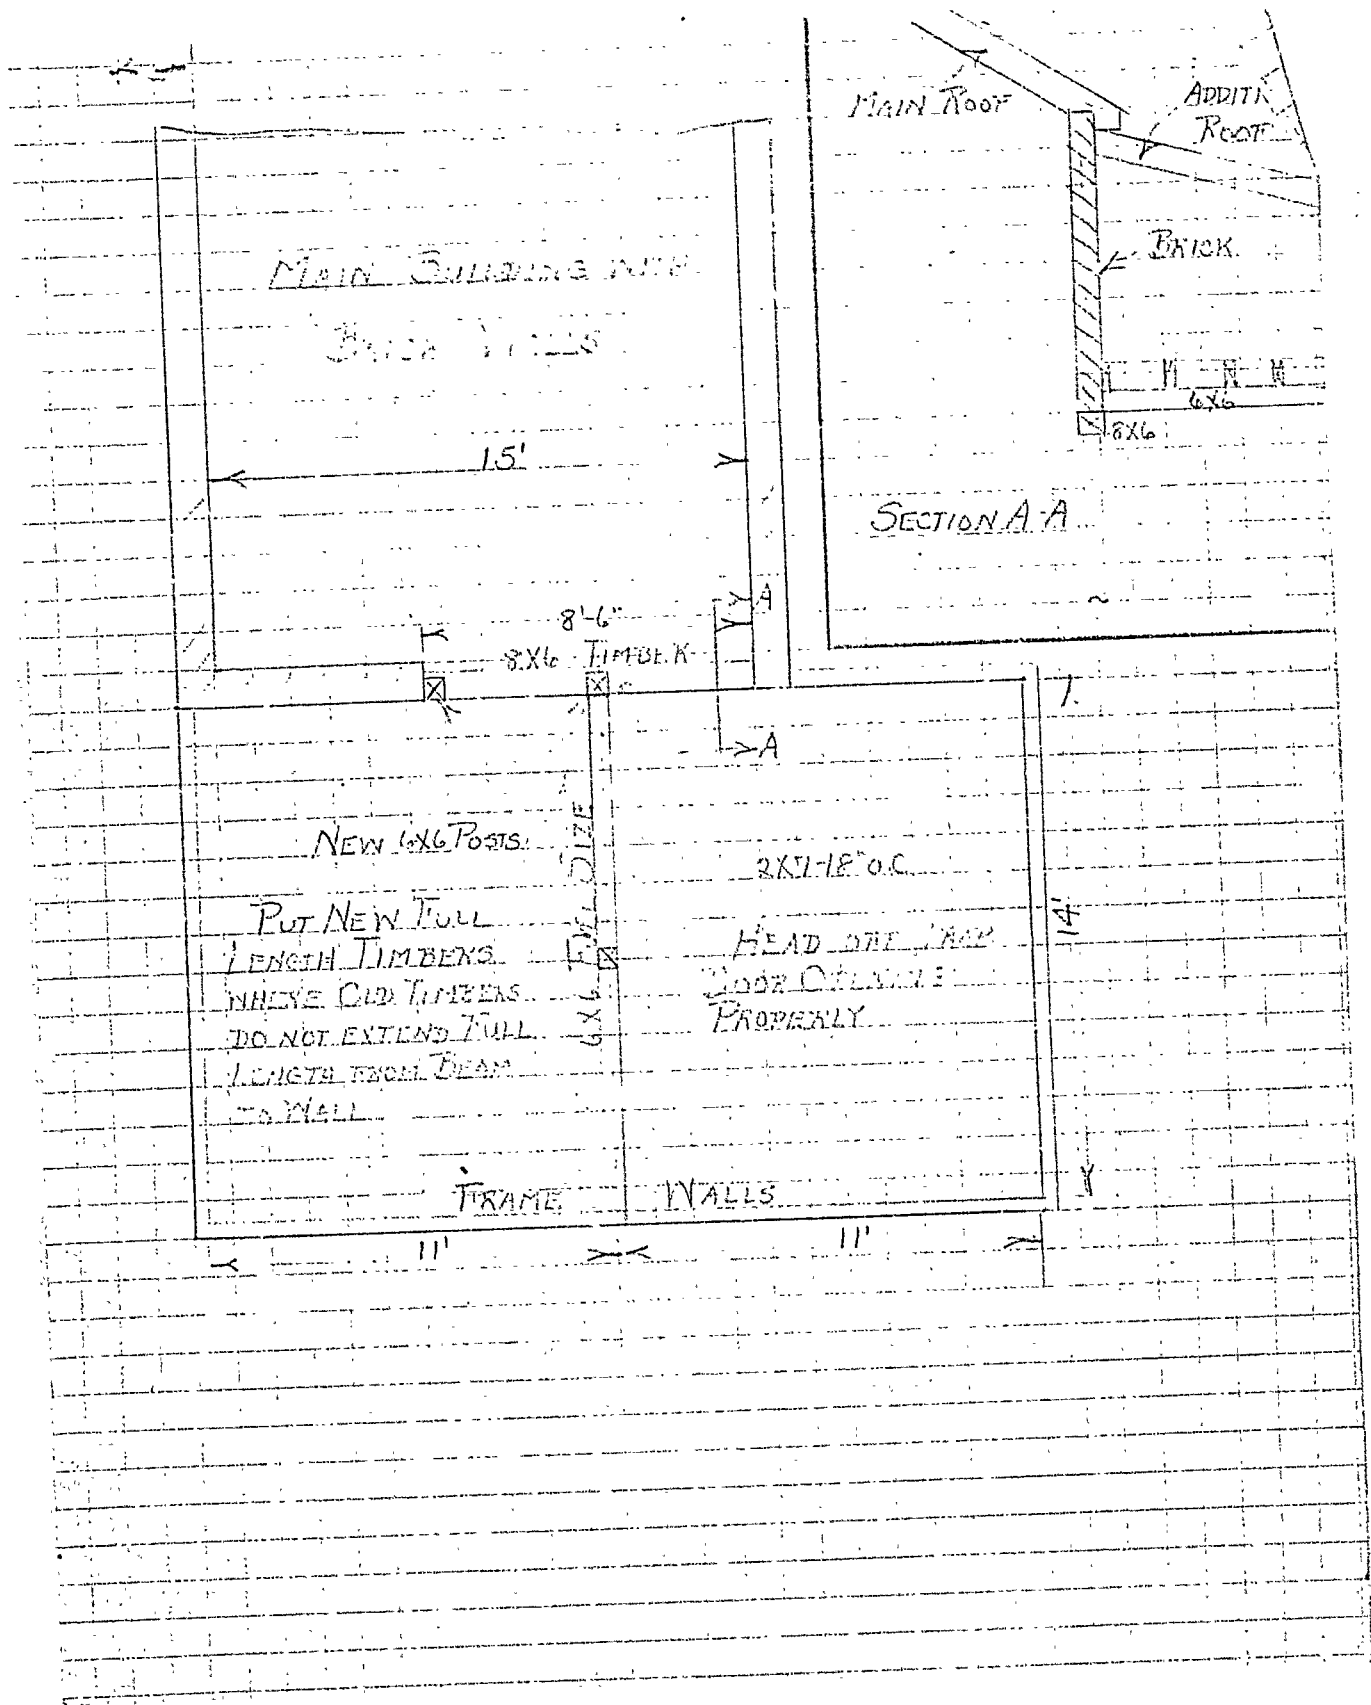 MAIN ROOF
ADDITI
ROOF
BRICK
6X6
8X6
SECTION A-A
MAIN BUILDING WITH
BRICK WALLS
15'
8'-6"
8X6 TIMBER
A
A
NEW 6X6 POSTS
PUT NEW FULL
LENGTH TIMBERS
WHERE OLD TIMBERS
DO NOT EXTEND FULL
LENGTH FROM BEAM
TO WALL
6X6 FULL SIZE
2X7-18" O.C.
HEAD OFF TRAP
DOOR OPENING
PROPERLY
14'
FRAME WALLS
11'
11'